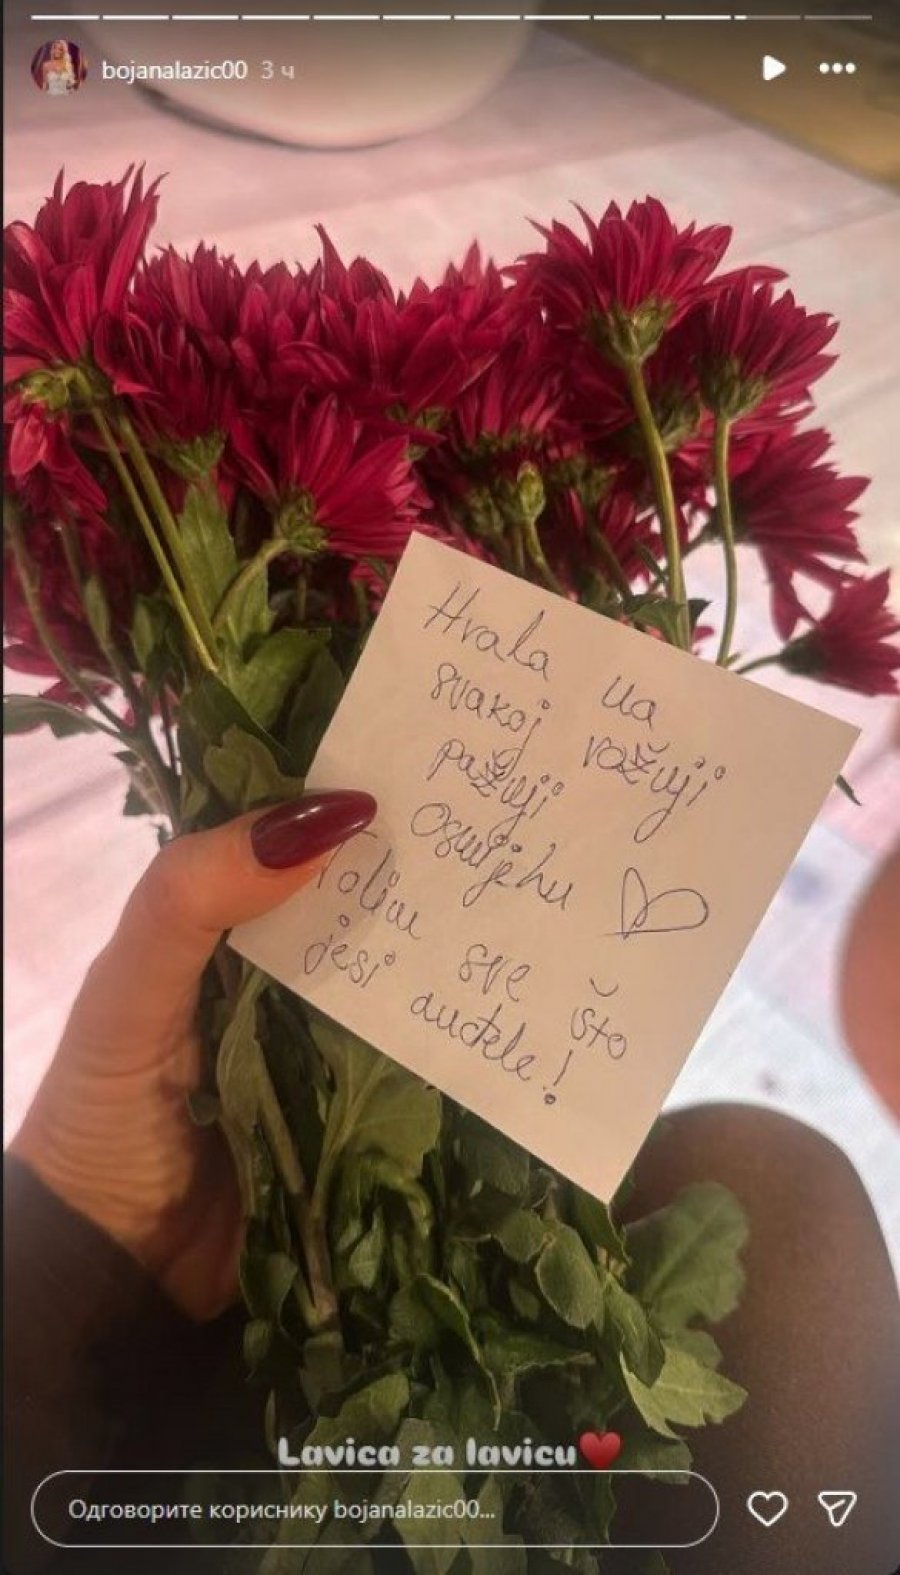 bojanalazic00 3 ч
Hvala na
svakoj ražnji
pažnji
Osmijehu
Volim sve što
jesi anđele!
Lavica za lavicu❤️
Одговорите кориснику bojanalazic00...